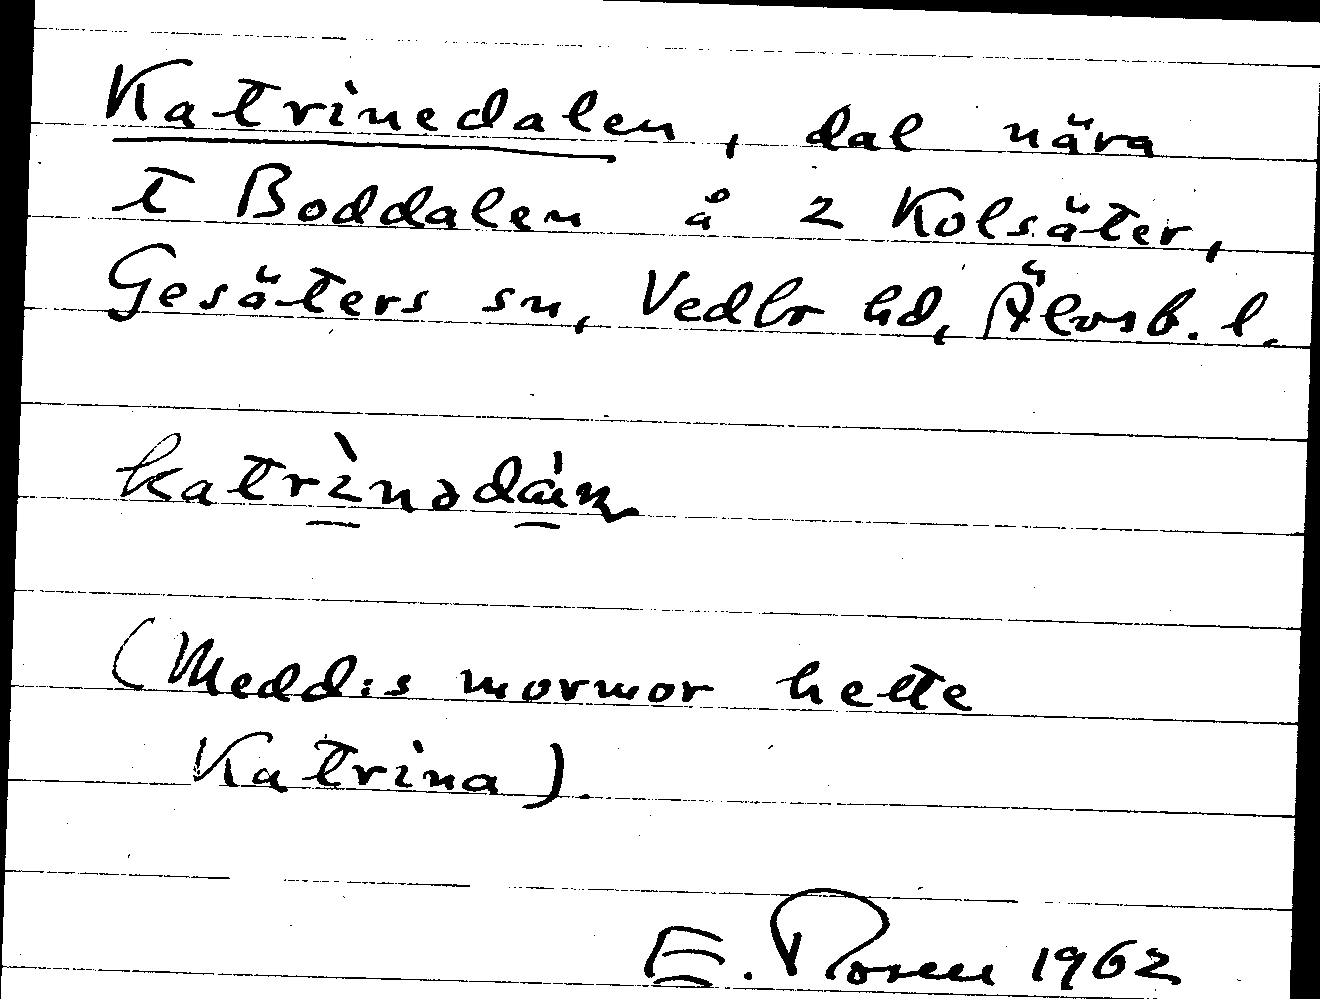 Katrinedalen, dal nära
t Boddalen å 2 Kolsäter,
Gesäters sn, Vedbr hd, Älvsb. l.
(Medd:s mormor hette
Katrina).
E. Rosen 1962